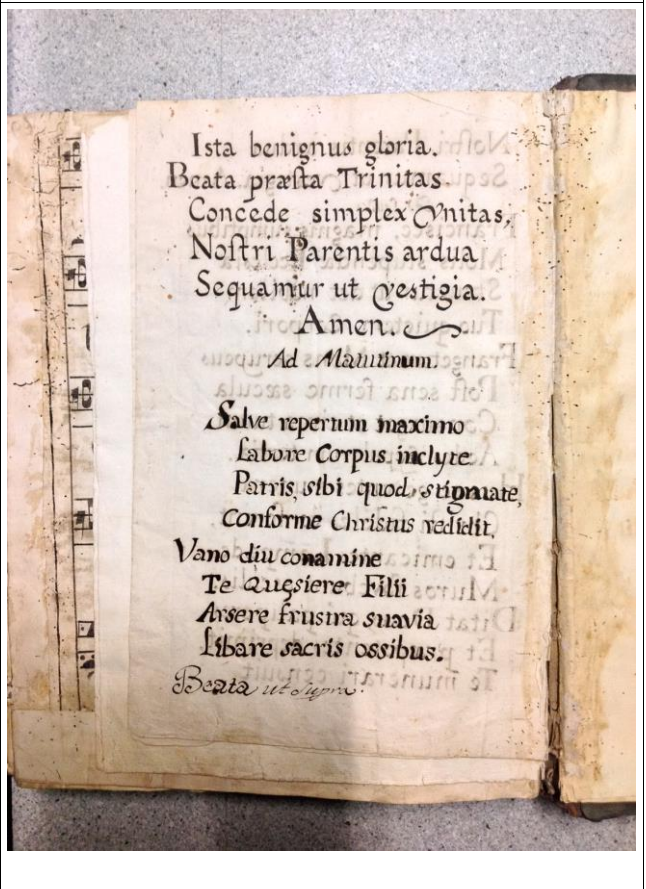 Ista benignus gloria.
Beata præſta Trinitas
Concede simplex Vnitas,
Noſtri Parentis ardua
Sequamur ut vestigia.
Amen.
Ad Matutinum.
Salve repertum maximo
Labore Corpus inclyte
Patris, sibi quod stigmate,
Conforme Christus redidit,
Vano diu conamine
Te Quęsiere Filii
Arsere frustra suavia
Libare sacris ossibus.
Beata ut supra.